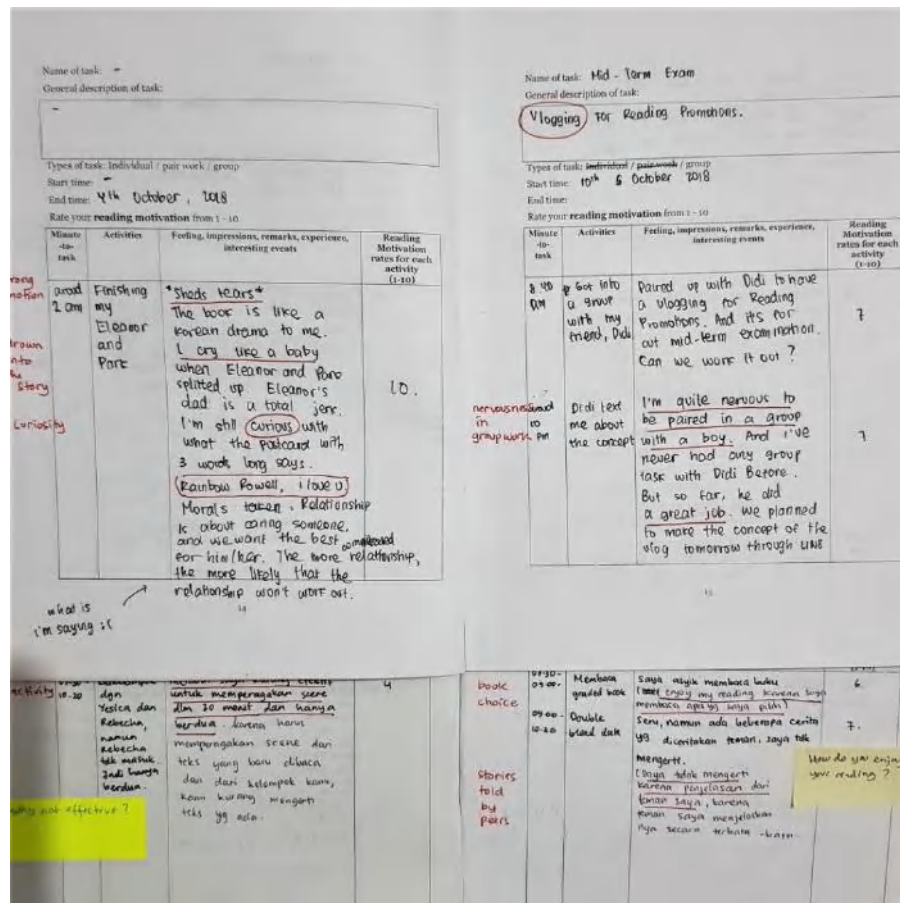 Name of task: -
General description of task:
-
Types of task: Individual / pair work / group
Start time: -
End time: 4th October, 2018
Rate your reading motivation from 1 - 10
Minute-to-task
Activities
Feeling, impressions, remarks, experience, interesting events
Reading Motivation rates for each activity (1-10)
arond 2 am
Finishing my Eleanor and Park
*Sheds tears*
The book is like a
korean drama to me.
I cry like a baby
when Eleanor and Park
splitted up. Eleanor's
dad is a total jerk.
I'm still curious with
what the postcard with
3 words long says.
(Rainbow Rowell, i love u)
Morals taken, Relationship
is about caring someone.
and we want the best
for him/her. The more complicated relationship,
the more likely that the
relationship won't work out.
10.
story
curiosity
what is
i'm saying :(
14
Name of task: Mid - Term Exam
General description of task:
Vlogging For Reading Promotions.
Types of task: Individual / pair work / group
Start time: 10th October 2018
End time:
Rate your reading motivation from 1 - 10
Minute-to-task
Activities
Feeling, impressions, remarks, experience, interesting events
Reading Motivation rates for each activity (1-10)
8.40 AM
Got into a group with my friend, Didi
Paired up with Didi to have
a vlogging for Reading
Promotions. And its for
out mid-term examination.
Can we work it out?
7
nervousness in group work
10 PM
Didi text me about the concept
I'm quite nervous to
be paired in a group
with a boy. And i've
never had any group
task with Didi Before.
But so far, he did
a great job. We planned
to make the concept of the
vlog tomorrow through LINE
7
15
10.20
dgn
Yesica dan
Rebecha,
namun
Rebecha
tdk masuk.
Jadi hanya
berdua.
untuk memperagakan scene
dlm 20 menit dan hanya
berdua. karena harus
memperagakan scene dan
teks yang baru dibaca
dan dari kelompok kami,
kami kurang mengerti
teks yg ada.
4
why not effective?
book choice
Membaca graded book
Saya asyik membaca buku
(enjoy my reading karena saya
membaca apa yg saya pilih)
6
09.00 -
10.20
Double
Seru, namun ada beberapa cerita
yg diceritakan teman, saya tdk
mengerti.
(Saya tidak mengerti
karena penjelasan dari
teman saya, karena
teman saya menjelaskan
nya secara terbata-bata.
7.
Stories
told
by
peers
How do you enjoy
your reading?